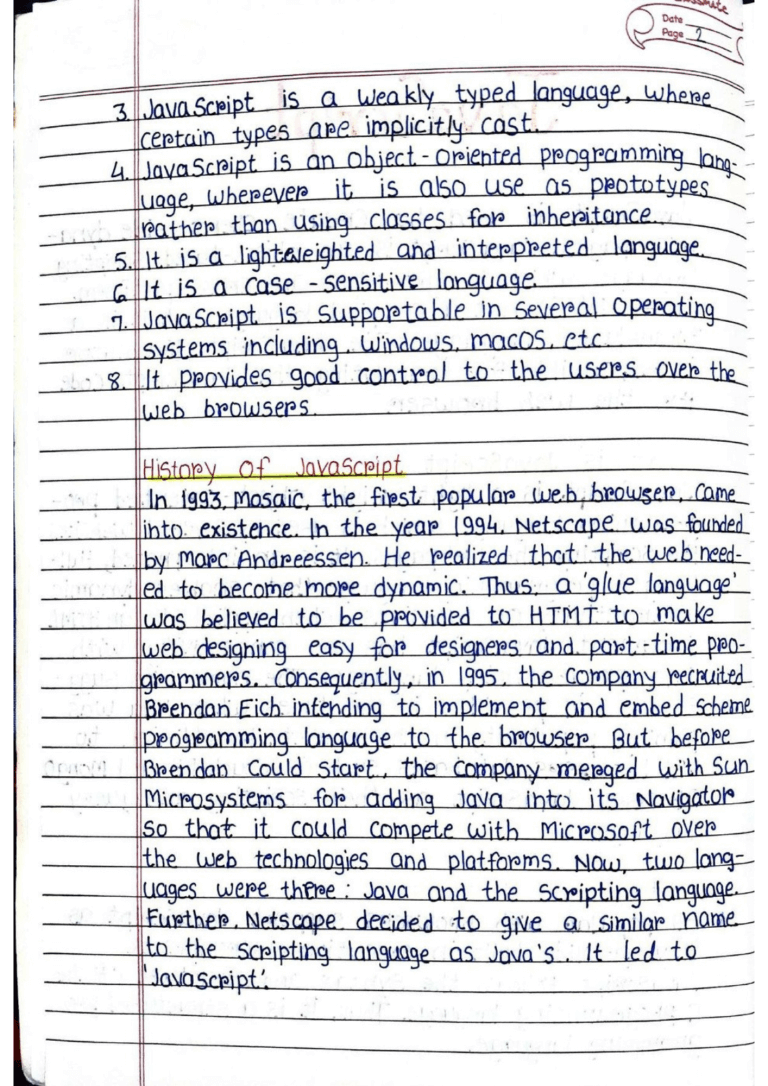 Date
Page 2
3. JavaScript is a weakly typed language, where
certain types are implicitly cast.
4. JavaScript is an object-oriented programming lang-
uage, wherever it is also use as prototypes
rather than using classes for inheritance.
5. It is a lighteweighted and interpreted language.
6. It is a case-sensitive language.
7. JavaScript is supportable in several operating
systems including, windows, macOS, etc.
8. It provides good control to the users over the
web browsers.
History of JavaScript
In 1993, Mosaic, the first popular web browser, came
into existence. In the year 1994, Netscape was founded
by Marc Andreessen. He realized that the web need-
ed to become more dynamic. Thus, a 'glue language'
was believed to be provided to HTMT to make
web designing easy for designers and part-time pro-
grammers. Consequently, in 1995, the company recruited
Brendan Eich intending to implement and embed scheme
programming language to the browser. But before
Brendan could start, the company merged with Sun
Microsystems for adding Java into its Navigator
so that it could compete with Microsoft over
the web technologies and platforms. Now, two lang-
uages were there: Java and the scripting language.
Further, Netscape decided to give a similar name
to the scripting language as Java's. It led to
'Javascript'.